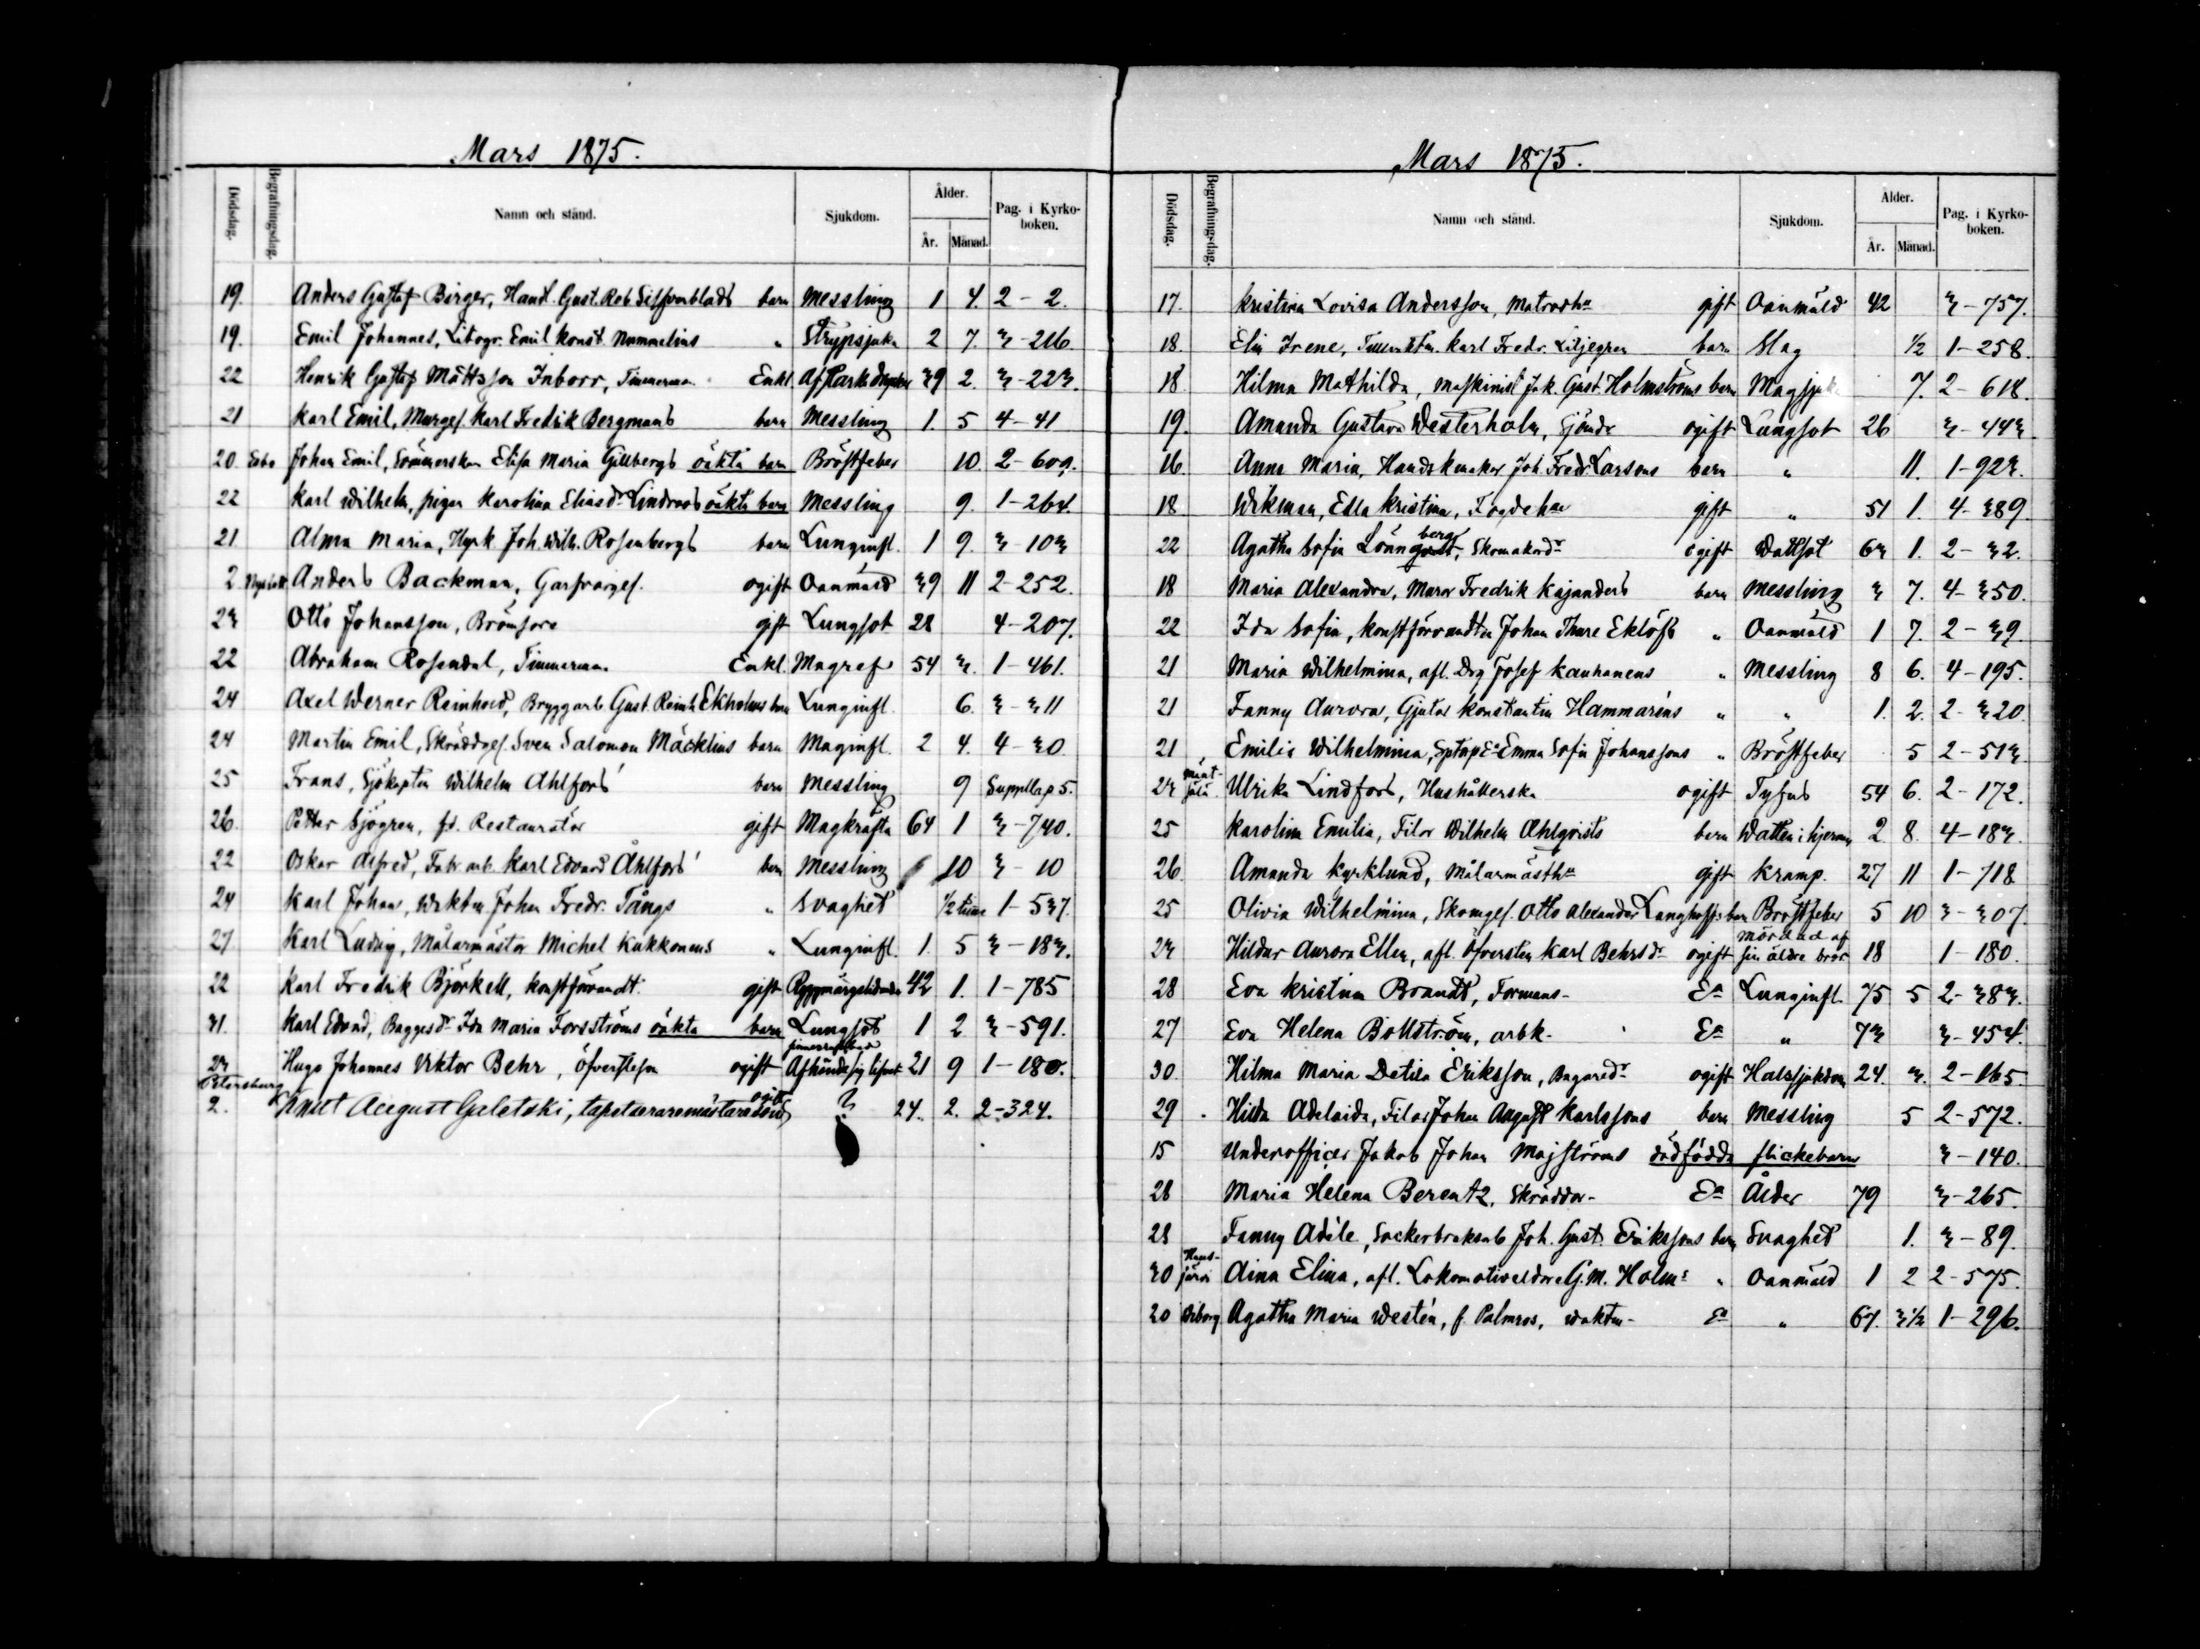 Mars 1875.
Dödsdag. Begrafningsdag. Namn och stånd. Sjukdom. Ålder. År. Månad. Pag. i Kyrkoboken.
19. Anders Gustaf Birger, Handl. Gust. Rob. Silfverblads barn Messling 1 4. 2-2.
19. Emil Johannes, Litogr. Emil Konst. Nummelins " Strypsjuka 2 7. 3-216.
22 Henrik Gustaf Mattsson Inborr, Timmerman Enkl. Af starka drycker 39 2. 3-223.
21 Karl Emil, Murges. Karl Fredrik Bergmans barn Messling 1. 5 4-41
20. Esbo Johan Emil, Sömmerskan Elisa Maria Gillbergs oäkta barn Bröstfeber 10. 2-609.
22 Karl Wilhelm, pigan Karolina Eliasdr Lindroos oäkta barn Messling 9. 1-264.
21 Alma Maria, Hyrk. Joh. Wilh. Rosenbergs barn Lunginfl. 1 9. 3-103
2 Nyslott Anders Backman, Garfvarges. ogift Oanmäld 39 11 2-252.
23 Otto Johansson, Bromsare gift Lungsot 28 4-207.
22 Abraham Rosendal, Timmerman Enkl. Magref 54 3. 1-461.
24 Axel Werner Reinhold, Bryggarb. Gust. Reinh. Ekholms barn Lunginfl. 6. 3-311
24 Martin Emil, Skräddges. Sven Salomon Mäcklins barn Maginfl. 2 4. 4-30
25 Frans, Sjökapten Wilhelm Ahlfors' barn Messling 9 Suppl lap 5.
26. Petter Sjögren, fd. Restauratör gift Magkräfta 64 1 3-740.
22 Oskar Alfred, Fabr. arb. Karl Edvard Åhlfors' barn Messling 10 3-10
24 Karl Johan, Waktm Johan Fredr. Tångs " Svaghet ½ timme 1-537.
27 Karl Ludvig, Målarmästar Michel Kukkonens " Lunginfl. 1. 5 3-183.
22 Karl Fredrik Björkell, konstförvandt. gift Ryggmärgslidande 42 1. 1-785
31. Karl Edvard, Baggesdr Ida Maria Forsströms oäkta barn Lungsot 1 2 3-591.
23 Hugo Johannes Viktor Behr, Öfversteson ogift Afhände sig lifvet 21 9 1-180.
Petersburg
2. Knut August Galetski, tapetseraremästareson ogift ? 24. 2. 2-324.
Mars 1875.
Dödsdag. Begrafningsdag. Namn och stånd. Sjukdom. Ålder. År. Månad. Pag. i Kyrkoboken.
17. Kristina Lovisa Andersson, Matrosha gift Oanmäld 42 3-757.
18. Elin Irene, Karl Fredr. Liljegren barn Slag ½ 1-258.
18 Hilma Mathilda, Maskinist Jak. Gust. Holmströms barn Magsjuka 7. 2-618.
19. Amanda Gustava Westerholm, Sjömdr ogift Lungsot 26 3-443.
16 Anna Maria, Handskmakar Joh. Fredr. Larsons barn " 11. 1-923.
18 Wikman, Edla Kristina, gift " 51 1. 4-389.
22 Agatha Sofia Lönnqvist berg, Skomakardr ogift Wattsot 63 1. 2-32.
18 Maria Alexandra, Murar Fredrik Kajanders barn Messling 3 7. 4-350.
22 Ida Sofia, konstförvandten Johan Thure Eklöfs " Oanmäld 1 7. 2-39.
21 Maria Wilhelmina, afl. Drg Josef Kauhanens " Messling 8 6. 4-195.
21 Fanny Aurora, Gjutar Konstantin Hammaréns " " 1. 2. 2-320
21 Emilia Wilhelmina, Emma Sofia Johanssons " Bröstfeber 5 2-513
23 Mäntsälä Ulrika Lindfors, Hushållerska ogift Tyfus 54 6. 2-172.
25 Karolina Emilia, Filar Wilhelm Ahlqvists barn Watten i hjernan 2. 8. 4-183.
26. Amanda Kyrklund, Målarmästha gift Kramp. 27 11 1-718
25 Olivia Wilhelmina, Skomges. Otto Alexander Langhoffs barn Bröstfeber 5 10 3-307.
23 Hildur Aurora Ellen, afl. Öfversten Karl Behrs dr ogift Mördad af sin äldre bror 18 1-180.
28 Eva Kristina Brandt, Formans- Ea Lunginfl. 75 5 2-383.
27 Eva Helena Bollström, arbk- Ea " 73 3-454.
30. Hilma Maria Detila Eriksson, Bagaredr ogift Halssjukdom 24. 3. 2-165.
29 Hilda Adelaida, Filar Johan August Karlssons barn Messling 5 2-572.
15 Underofficer Jakob Johan Majströms dödfödda flickebarn 3-140.
28 Maria Helena Berentz, Skräddar- Ea Ålder 79 3-265.
28 Fanny Adéle, Sockerbruksarb Joh. Gust. Erikssons barn Svaghet 1. 3-89.
30 Hausjärvi Aina Elina, afl. Lokomotiveldare G. M. Holms " Oanmäld 1 2 2-575.
20 Wiborg Agatha Maria Westén, f. Palmros, waktm- Ea " 67. 3½ 1-296.